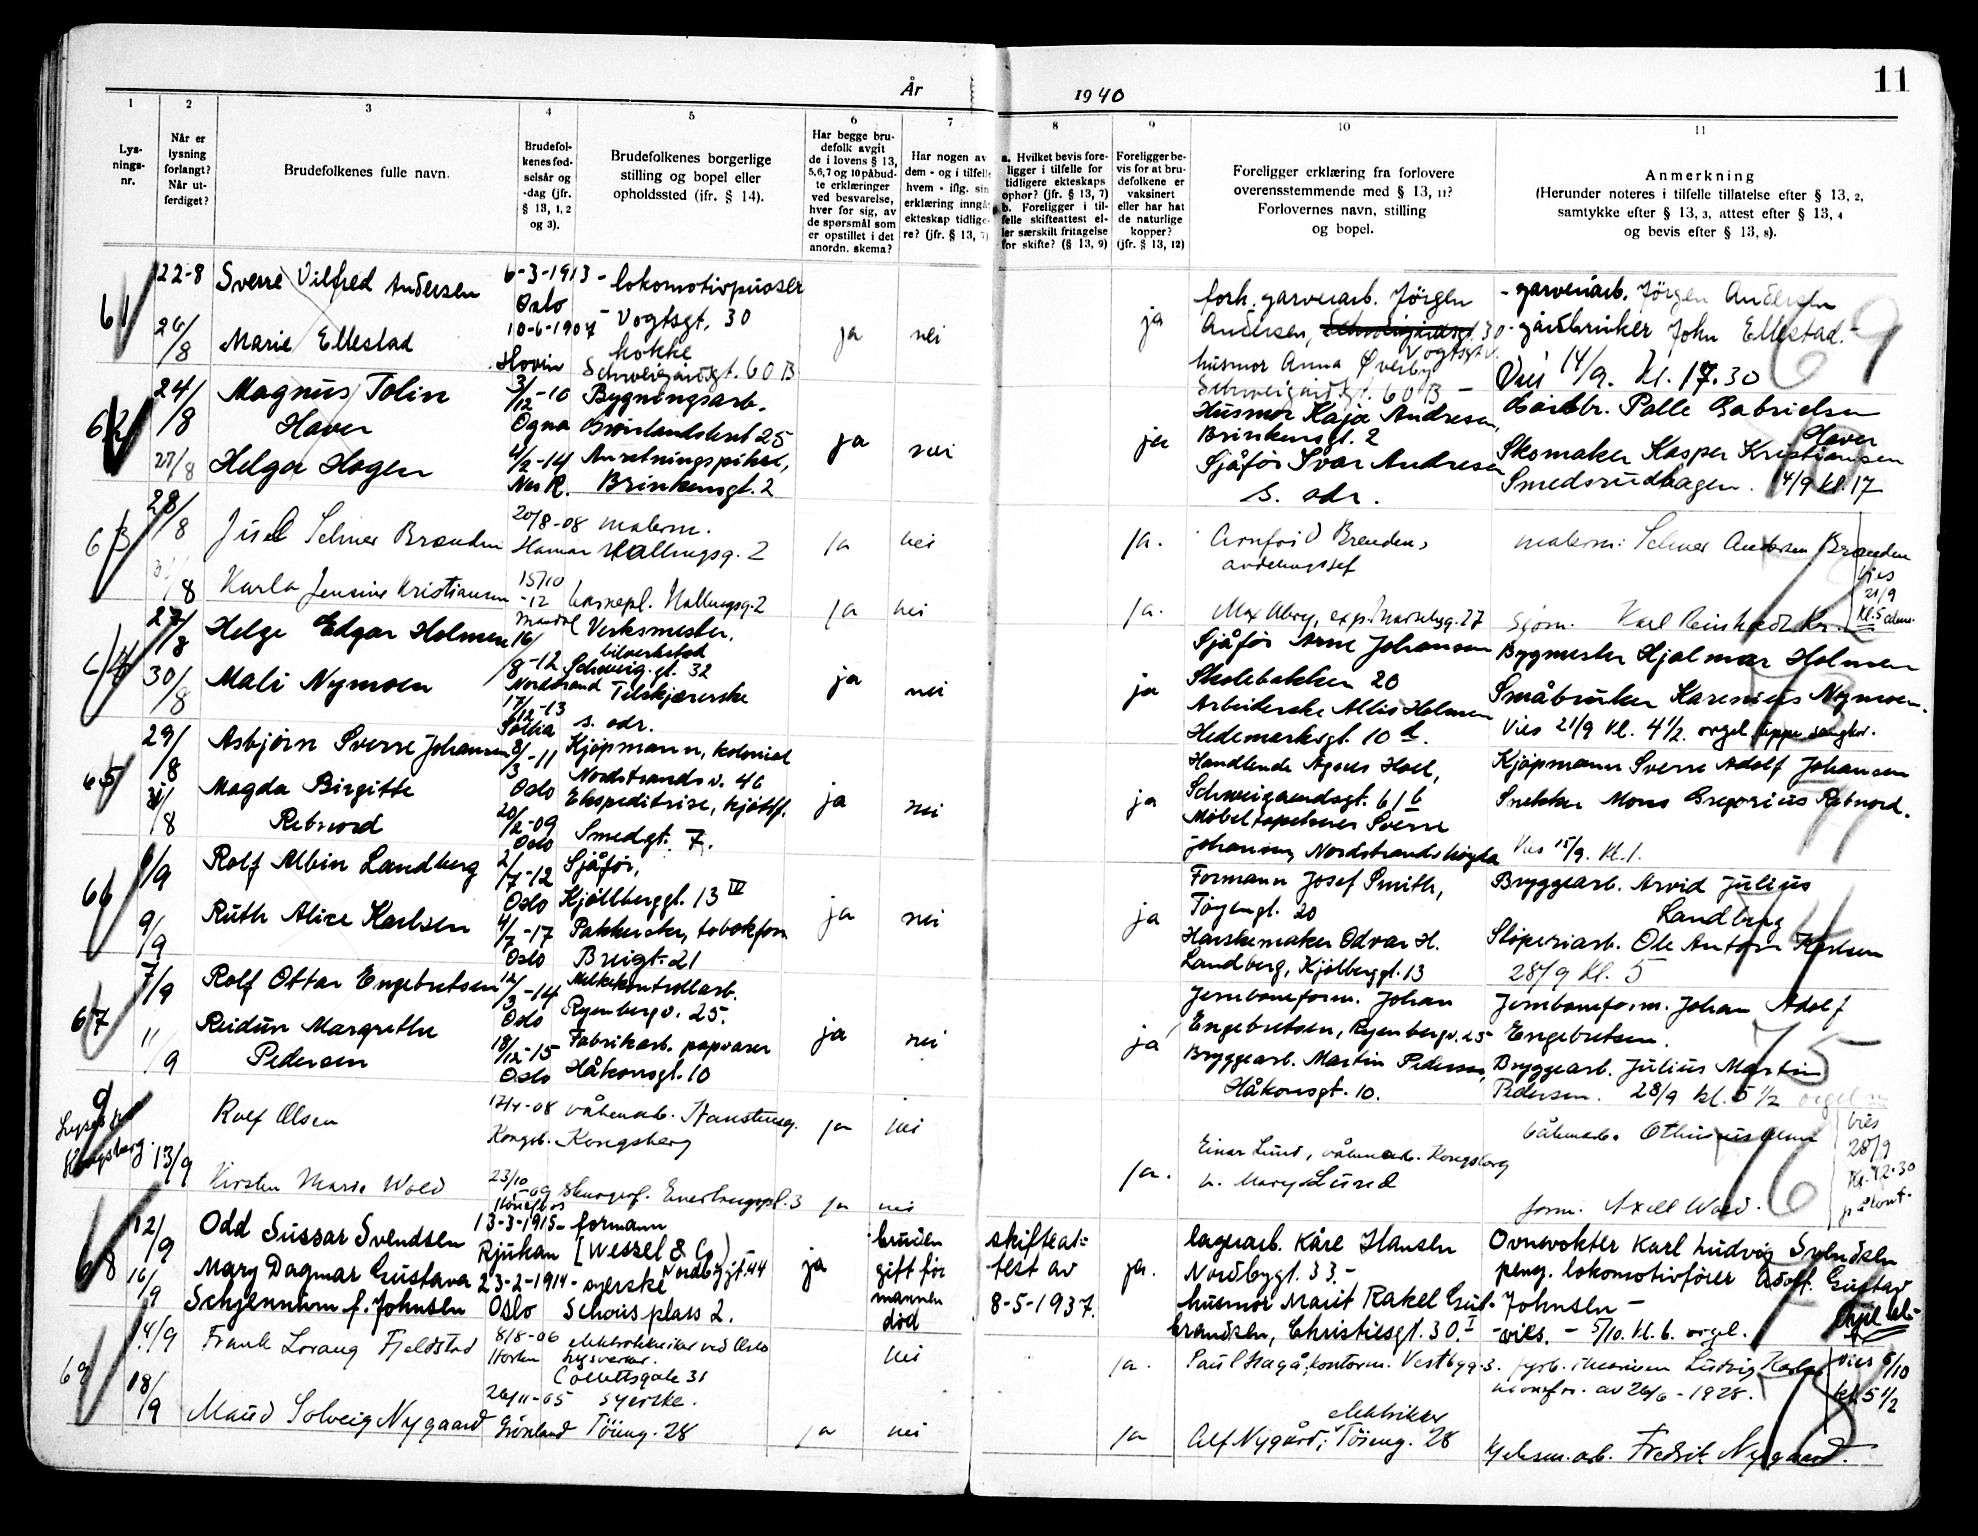 År 1940
11
1
2
3
4
5
6
7
8
9
10
11
Lys-
nings-
nr.
Når er
lysning
forlangt?
Når ut-
ferdiget?
Brudefolkenes fulle navn.
Brudefol-
kenes fød-
selsår og
-dag (jfr.
§ 13, 1, 2
og 3).
Brudefolkenes borgerlige
stilling og bopel eller
opholdssted (jfr. § 14).
Har begge bru-
defolk avgit
de i lovens § 13,
5,6,7 og 10 påbud-
te erklæringer
ved besvarelse,
hver for sig, av
de spørsmål som
er opstillet i det
anordn. skema?
Har nogen av
dem - og i tilfelle
hvem - iflg. sin
erklæring inngå
ekteskap tidlige-
re? (jfr. § 13, 7)
a. Hvilket bevis fore-
ligger i tilfelle for
tidligere ekteskaps
ophør? (jfr. § 13, 7)
b. Foreligger i til-
felle skifteattest el-
ler særskilt fritagelse
for skifte? (§ 13, 9)
Foreligger be-
vis for at bru-
defolkene er
vaksinert
eller har hat
de naturlige
kopper?
(jfr. § 13, 12)
Foreligger erklæring fra forlovere
overensstemmende med § 13, 11?
Forlovernes navn, stilling
og bopel.
Anmerkning
(Herunder noteres i tilfelle tillatelse efter § 13, 2,
samtykke efter § 13, 3, attest efter § 13, 4
og bevis efter § 13, 8).
61
22-8
26/8
Sverre Vilfred Andersen
Marie Ellestad
6-3-1913 - lokomotivpusser
Oslo - Vogtsgt. 30
10-6-1907 kokke
Hovin Schweigaardsgt. 60 B
ja
nei
ja
forh. garveriarb. Jörgen
Andersen, Vogtsgt. 30
husmor Anna Øverby
Schweigårdsgt. 60 B -
- garveriarb. Jörgen Andersen
- gårdbruker John Ellestad -
Vies 14/9. Kl. 17.30
69
62
24/8
27/8
Magnus Tolin
Haver
Helga Hagen
3/12-10 Bygningsarb.
Ogna 25
4/2-14
Nes R. Brinkensgt. 2
ja
nei
ja
Husmor Kaja Andresen,
Brinkensgt. 2
Sjåfør Ivar Andresen
s. adr.
Gårdbr. Palle Gabrielsen
Haver
Skomaker Kasper Kristiansen
Smedsrudhagen. 14/9 kl. 17
63
28/8
Karla Jensine Kristiansen
20/8-08 malerm.
Hamar Hallingsg. 2
15/10
-12 barnepl. Hallingsg. 2
Mandal
ja
nei
ja
nei
ja.
ja.
Arnfrid Brenden,
avdelingssjef
malerm:
vies
21/9
Kl. 5
Sjøm. Karl Reinhardt Kr.
64
27/8
30/8
Helge Edgar Holmen
Mali Nymoen
16/8-12 Verksmester,
bilverksted
Schweig. gt. 32
Nordstrand Tilskjærerske
17/12-13
Sollia s. adr.
ja
nei
ja
Sjåfør Arne Johansen
Skolebakken 20
Arbeiderske Allis Holmen
Hedemarksgt. 10 d.
Bygmester Hjalmar Holmen
Småbruker Karenius Nymoen.
Vies 21/9 kl. 4 1/2. orgel, teppe
65
29/8
31/8
Asbjørn Sverre Johansen
Magda Birgitte
Rebnord
8/3-11 Kjøpmann, kolonial
Nordstrandsv. 46
Oslo Ekspeditrise, kjøttf.
20/2-09
Oslo Smedgt. 7.
ja
nei
ja
Handlende Agnes Hoel,
Schweigaardsgt. 61 b
Møbeltapetserer Sverre
Johansen, Nordstrandshøgda
Kjøpmann Sverre Adolf Johansen
Snekker Mons Gregorius Rebnord.
Vies 15/9. Kl. 1.
66
6/9
9/9
Rolf Albin Landberg
Ruth Alice Karlsen
2/7-12 Sjåfør,
Oslo Kjølberggt. 13 IV
4/7-17 Pakkerske,
Oslo Breigt. 21
ja
nei
ja
Formann Josef Smith,
Tøyengt. 20
Harskemaker Odvar H.
Landberg, Kjølberggt. 13
Bryggearb. Arvid Julius
Landberg
Støperiarb. Ole Anton Karlsen
28/9 kl. 5
67
7/9
11/9
Rolf Ottar Engebretsen
Reidun Margrethe
Pedersen
12/3-14 Melkekontrollarb.
Oslo Ryenbergv. 25.
18/12-15 Fabrikarb. papvarer
Oslo Håkonsgt. 10
ja
nei
ja
Jernbaneform. Johan
Engebretsen, Ryenbergv. 25
Bryggearb. Martin Pedersen,
Håkonsgt. 10.
Jernbaneform. Johan Adolf
Engebretsen.
Bryggearb. Julius Martin
Pedersen. 28/9 kl. 5 1/2 orgel
75
Kongsberg.
13/9
Rolf Olsen
Kirsten Marie Wold
Kongsb. Kongsberg
23/10
-09
Hønefoss
ja
nei
ja
nei
ja.
Einar Lund, våbenarb. Kongsberg
Mary Lund
form. Axell Wold.
vies
28/9
Kl. 12.30
76
68
12/9
16/9
Odd Sussar Svendsen
Mary Dagmar Gustava
Schjennum f. Johnsen
13-3-1915 - formann
Rjukan [Wessel & Co) Nordbygt. 44
23-2-1914 - syerske
Oslo Schous plass 2.
ja
bruden
gift før
mannen
død
skifteat-
test av
8-5-1937.
ja.
lagerarb. Kåre Hansen
Nordbygt. 33.-
husmor Marit Rakel Gul-
brandsen, Christiesgt. 30. I
Ovnsvokter Karl Ludvig Svendsen
penj. lokomotivfører Adolf Gustav
Johnsen -
- vies. - 5/10. kl. 6. orgel.
69
14/9
18/9
Frank Lorang Fjeldstad
Maud Solveig Nygaard
8/8-06 elektrotekniker ved Oslo
Horten lysverker.
Collettsgate 31
26/11-05 syerske.
Grønland Töieng. 28
nei
ja
nei
ja.
ja
Paul Hagå, kontorm. Vestbyg. 3.
elektriker
Alf Nygård, Töieng. 28
av 26/6 - 1928.
vies 5/10
kl. 5 1/2
Fredrik Nygaard.
78